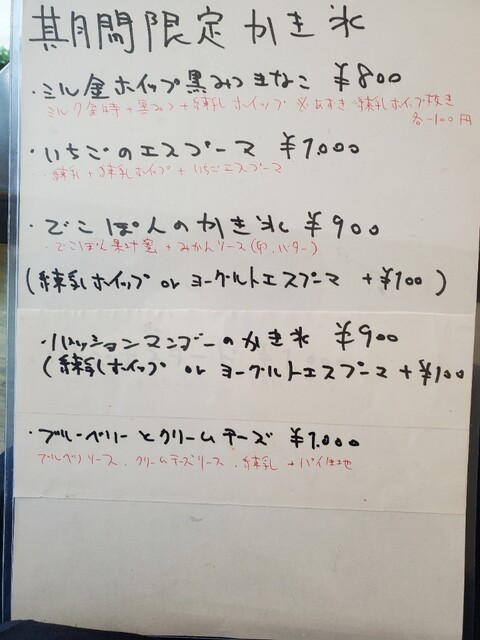 期間限定かき氷
・ミル金ホイップ黒みつきなこ ¥800
ミルク金時+黒みつ+練乳ホイップ ※あずき 練乳ホイップ抜き
各-100円
・いちごのエスプーマ ¥1,000
・練乳+練乳ホイップ+いちごエスプーマ
・でこぽんのかき氷 ¥900
・でこぽん果汁蜜+みかんソース(卵、バター)
(練乳ホイップ or ヨーグルトエスプーマ +¥100)
・パッションマンゴーのかき氷 ¥900
(練乳ホイップ or ヨーグルトエスプーマ +¥100
・ブルーベリーとクリームチーズ ¥1,000
ブルベリソース、クリームチーズソース、練乳 +パイ生地